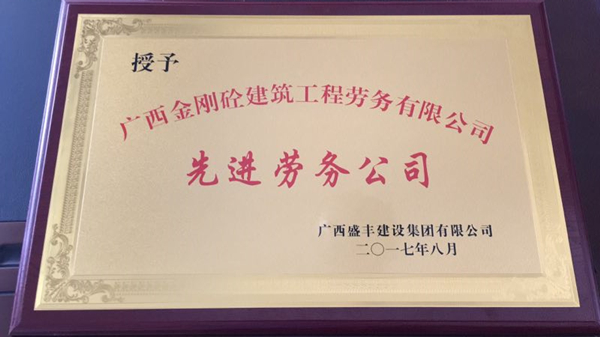 授予
广西金刚砼建筑工程劳务有限公司
先进劳务公司
广西盛丰建设集团有限公司
二〇一七年八月